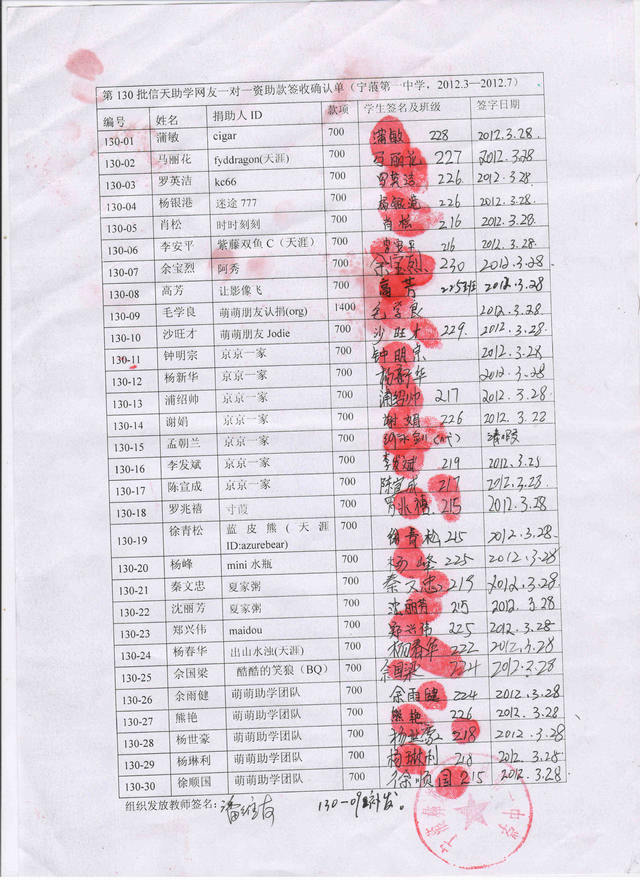 第 130 批信天助学网友一对一资助款签收确认单（宁蒗第一中学，2012.3—2012.7）
编号 姓名 捐助人 ID 款项 学生签名及班级 签字日期
130-01 蒲敏 cigar 700 蒲敏 228 2012.3.28.
130-02 马丽花 fyddragon(天涯) 700 马丽花 227 2012.3.28
130-03 罗英洁 kc66 700 罗英洁 226 2012.3.28
130-04 杨银港 迷途 777 700 杨银港 226 2012.3.28.
130-05 肖松 时时刻刻 700 肖松 216 2012.3.28.
130-06 李安平 紫藤双鱼 C（天涯） 700 李安平 216 2012.3.28.
130-07 余宝烈 阿秀 700 余宝烈 230 2012.3.28
130-08 高芳 让影像飞 700 高芳 225班 2012.3.28
130-09 毛学良 萌萌朋友认捐(org) 1400 毛学良 2012.3.28
130-10 沙旺才 萌萌朋友 Jodie 700 沙旺才 229. 2012.3.28.
130-11 钟明宗 京京一家 700 钟明宗 2012.3.28
130-12 杨新华 京京一家 700 杨新华 2012.3.28
130-13 浦绍帅 京京一家 700 浦绍帅 217 2012.3.28.
130-14 谢娟 京京一家 700 谢娟 226 2012.3.28
130-15 孟朝兰 京京一家 700 (代) 请假
130-16 李发斌 京京一家 700 李发斌 219 2012.3.28
130-17 陈宣成 京京一家 700 陈宣成 217 2012.3.28.
130-18 罗兆禧 寸菔 700 罗兆禧 215 2012.3.28.
130-19 徐青松 蓝皮熊（天涯 700 徐青松 215 2012.3.28.
ID:azurebear)
130-20 杨峰 mini 水瓶 700 杨峰 225 2012.3.28.
130-21 秦文忠 夏家粥 700 秦文忠 219 2012.3.28
130-22 沈丽芳 夏家粥 700 沈丽芳 215 2012.3.28
130-23 郑兴伟 maidou 700 郑兴伟 225 2012.3.28.
130-24 杨春华 出山水浊(天涯) 700 杨春华 222 2012.3.28.
130-25 余国梁 酷酷的笑狼（BQ） 700 余国梁 224 2012.3.28
130-26 余雨健 萌萌助学团队 700 余雨健 224 2012.3.28
130-27 熊艳 萌萌助学团队 700 熊艳 226 2012.3.28
130-28 杨世豪 萌萌助学团队 700 杨世豪 218 2012.3.28.
130-29 杨琳利 萌萌助学团队 700 杨琳利 218 2012.3.28.
130-30 徐顺国 萌萌助学团队 700 徐顺国 215 2012.3.28.
组织发放教师签名： 130-09